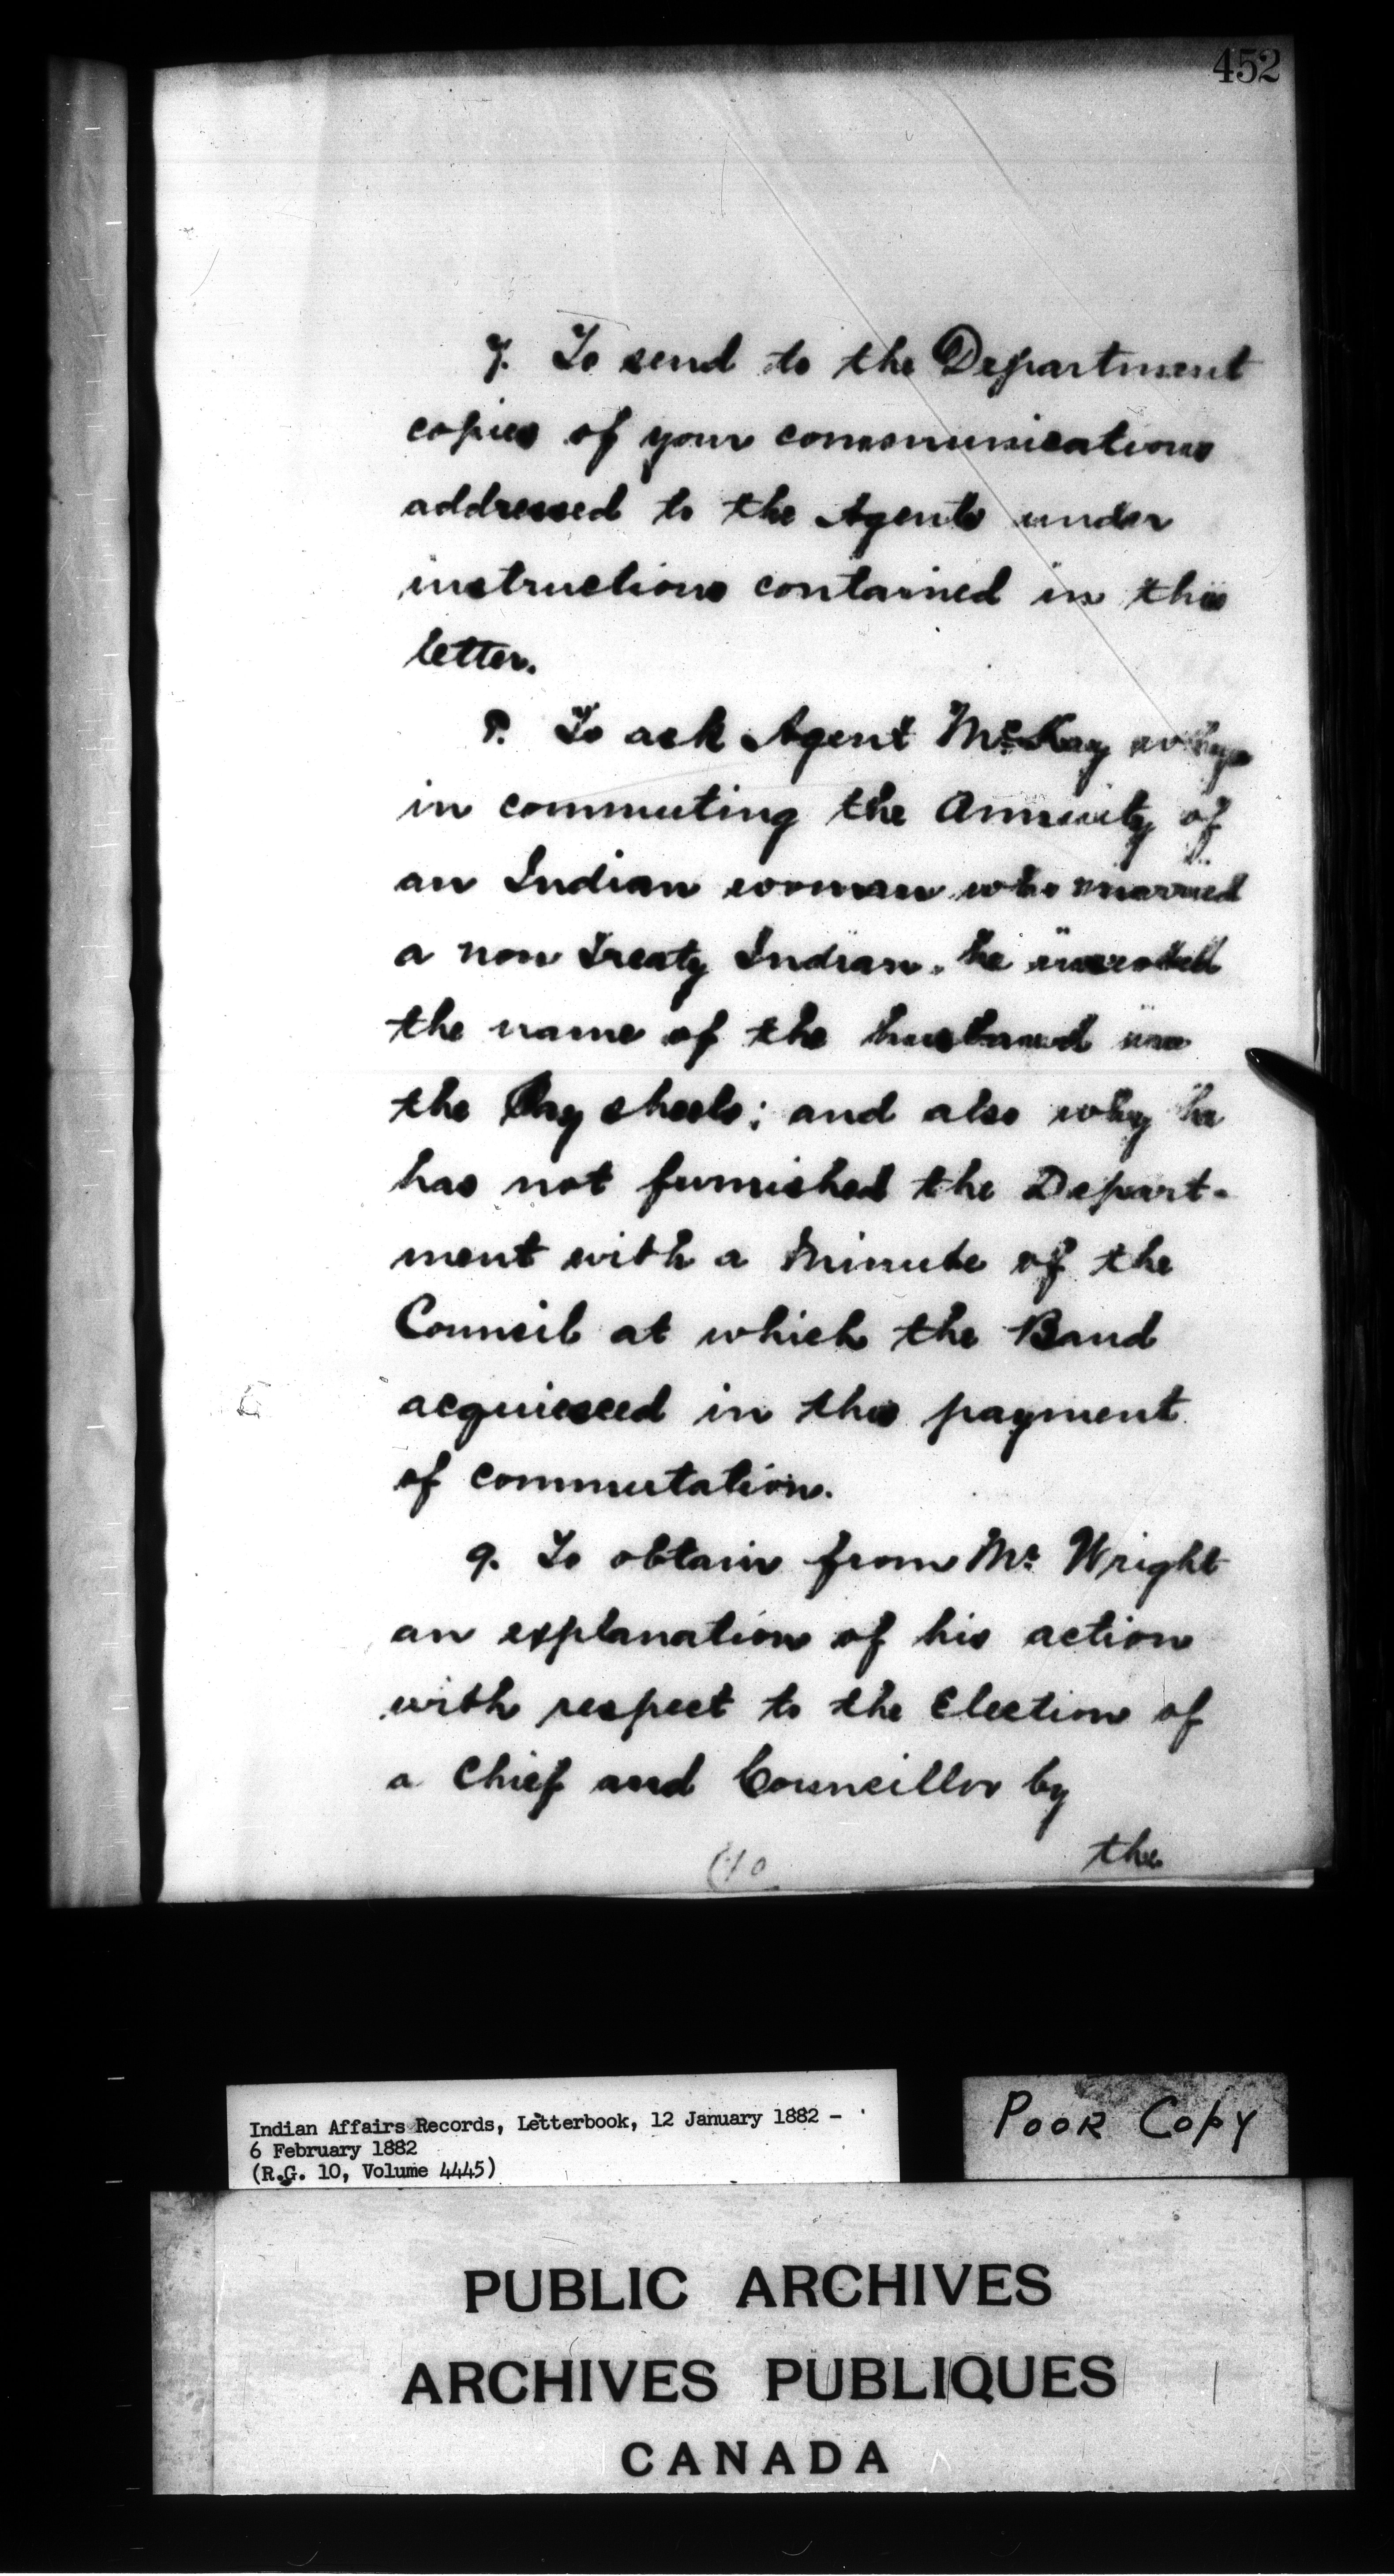 452
7. To send to the Department
copies of your communications
addressed to the Agents under
instructions contained in this
letter.
8. To ask Agent McKay why
in commuting the Annuity of
an Indian woman who married
a non Treaty Indian. he
the name of the husband on
the Pay sheets; and also why he
has not furnished the Depart-
ment with a Minute of the
Council at which the Band
acquiesced in this payment
of commutation.
9. To obtain from Mr Wright
an explanation of his action
with respect to the Election of
a Chief and Councillor by
the
Indian Affairs Records, Letterbook, 12 January 1882 -
6 February 1882
(R.G. 10, Volume 4445)
POOR COPY
PUBLIC ARCHIVES
ARCHIVES PUBLIQUES
CANADA